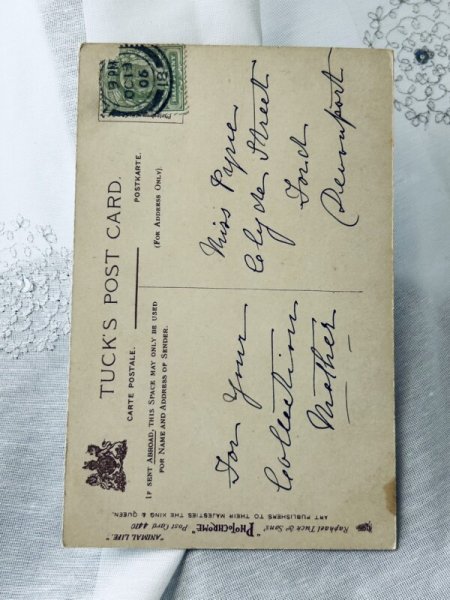 TUCK'S POST CARD.
CARTE POSTALE.
POSTKARTE.
IF SENT ABROAD, THIS SPACE MAY ONLY BE USED
FOR NAME AND ADDRESS OF SENDER.
(FOR ADDRESS ONLY).
9 PM
OC 13
06
81
For Your
Collection
Mother
Miss Pyne
Clyde Street
Ford
Devonport
Raphael Tuck & Sons' "PHOTOCHROME" Post Card 4410 "ANIMAL LIFE."
ART PUBLISHERS TO THEIR MAJESTIES THE KING & QUEEN.